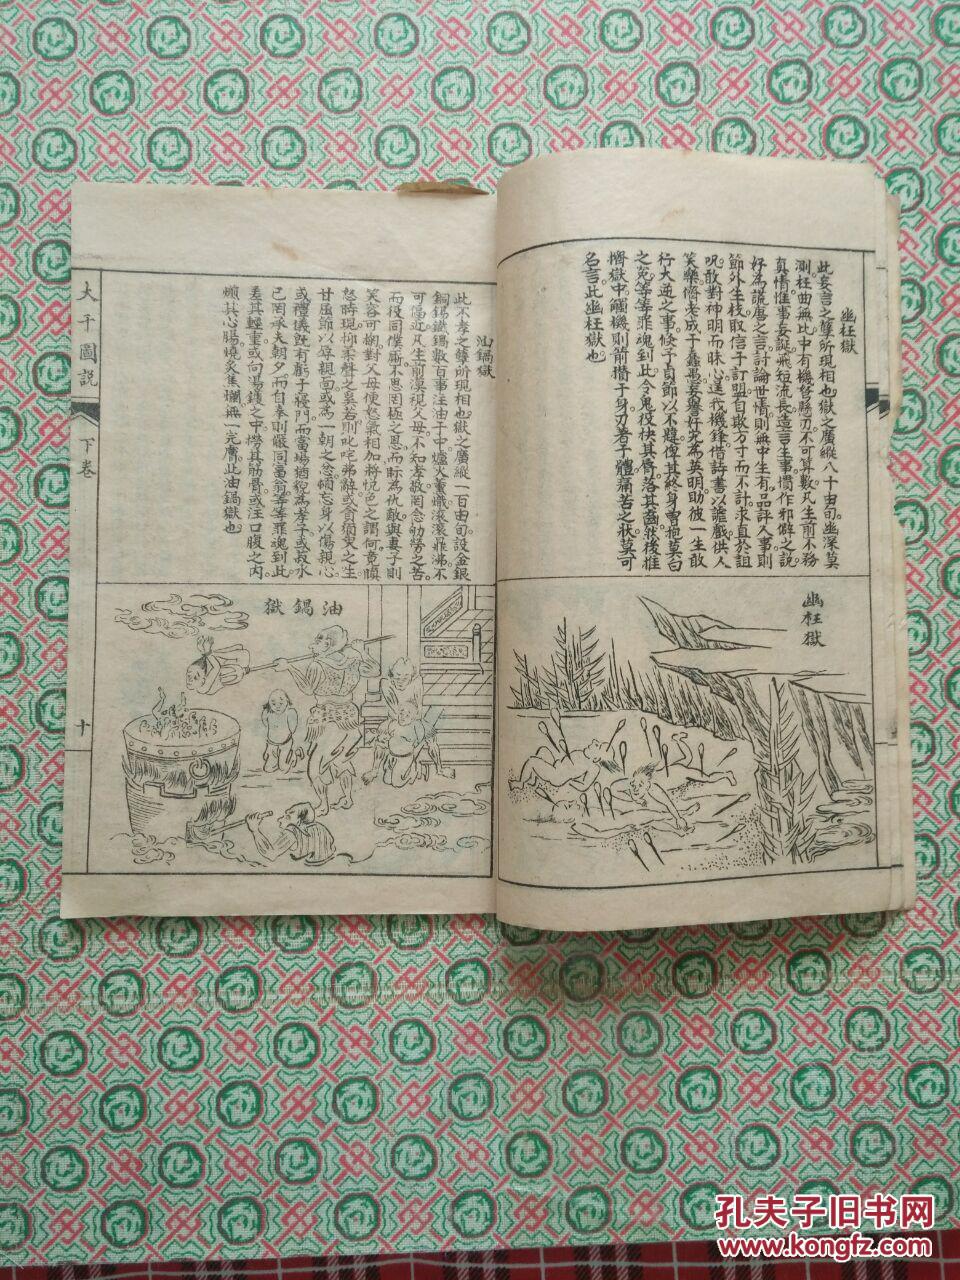 幽枉獄
此妄言之孽所現相也獄之廣縱八十由旬幽深莫
測枉曲無比中有機弩懸刃不可算數凡生前不務
真情惟事妄誕飛短流長造言生事慣作邪僻之說
好為謊唇之言討論世情則無中生有品評人事則
節外生枝取信于訂盟自欺方寸而不計求直於詛
呪敢對神明而昧心逞我機鋒借詩書以謔戲供人
笑樂儕老成于蠢愚妄譽好究為英明助彼一生敢
行大逆之事倏子貞節以不韙俾其終身曾抱莫白
之冤等等罪魂到此令鬼役抉其唇落其齒然後推
擠獄中觸機則箭攢于身刃著于體痛苦之狀莫可
名言此幽枉獄也
幽枉獄
油鍋獄
此不孝之孽所現相也獄之廣縱一百由旬設金銀
銅錫鐵鍋數百事注油于中爐火薰熾滾滾飛沸不
可偪近凡生前漠視父母不知孝敬罔念劬勞之苦
而役同僕廝不思罔極之恩而眎為仇敵與妻子則
笑容可掬對父母使怒氣相加將悅色之謂何竟瞋
怒時現抑柔聲之奚若則叱咤弗辭或貪須臾之生
甘屈節以辱親面或為一朝之忿頓忘身以傷親心
或禮儀既有虧于寢門而當場猶貌為孝子或菽水
已罔承夫朝夕而自奉則儼同富翁等等罪魂到此
差其輕重或向湯鑊之中撈其筋骨或注口腹之內
爛其心腸燒炙焦爛無一完膚此油鍋獄也
油鍋獄
大千圖説
下卷
十
孔夫子旧书网
www.kongfz.com